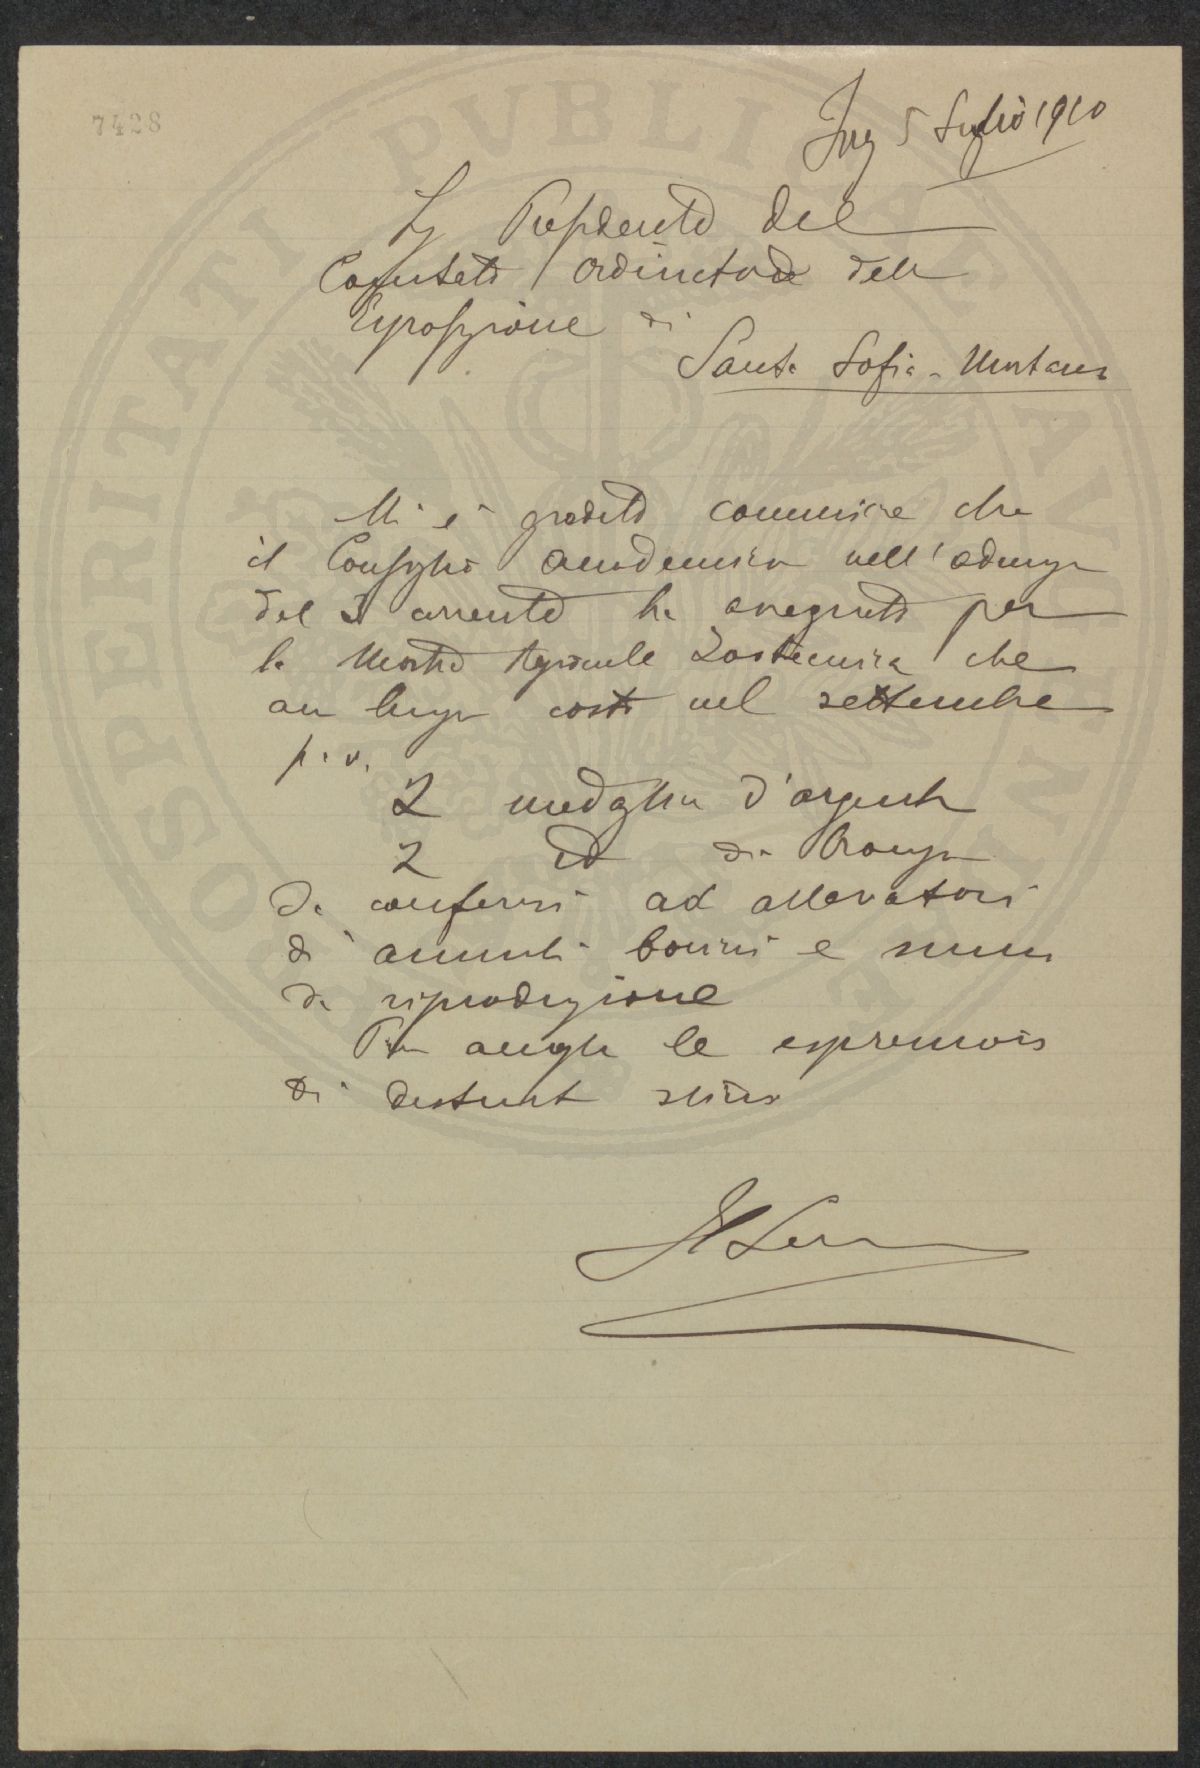 7428
5 Luglio 1910
Presidente del
Comitato Ordinatore della
Esposizione di
Santa Sofia - Mortano
Mi è gradito comunicare che
il Consiglio accademico nell'adunza
del 3 corrente ha assegnato per
la Mostra Agricola Zootecnica che
avrà luogo costì nel settembre
p. v.
2 medaglie d'argento
2 id di bronzo
da conferirsi ad allevatori
di animali bovini e suini
da riproduzione
le espressioni
di distinta stima
PROSPERITATI PVBLICAE AVGENDAE